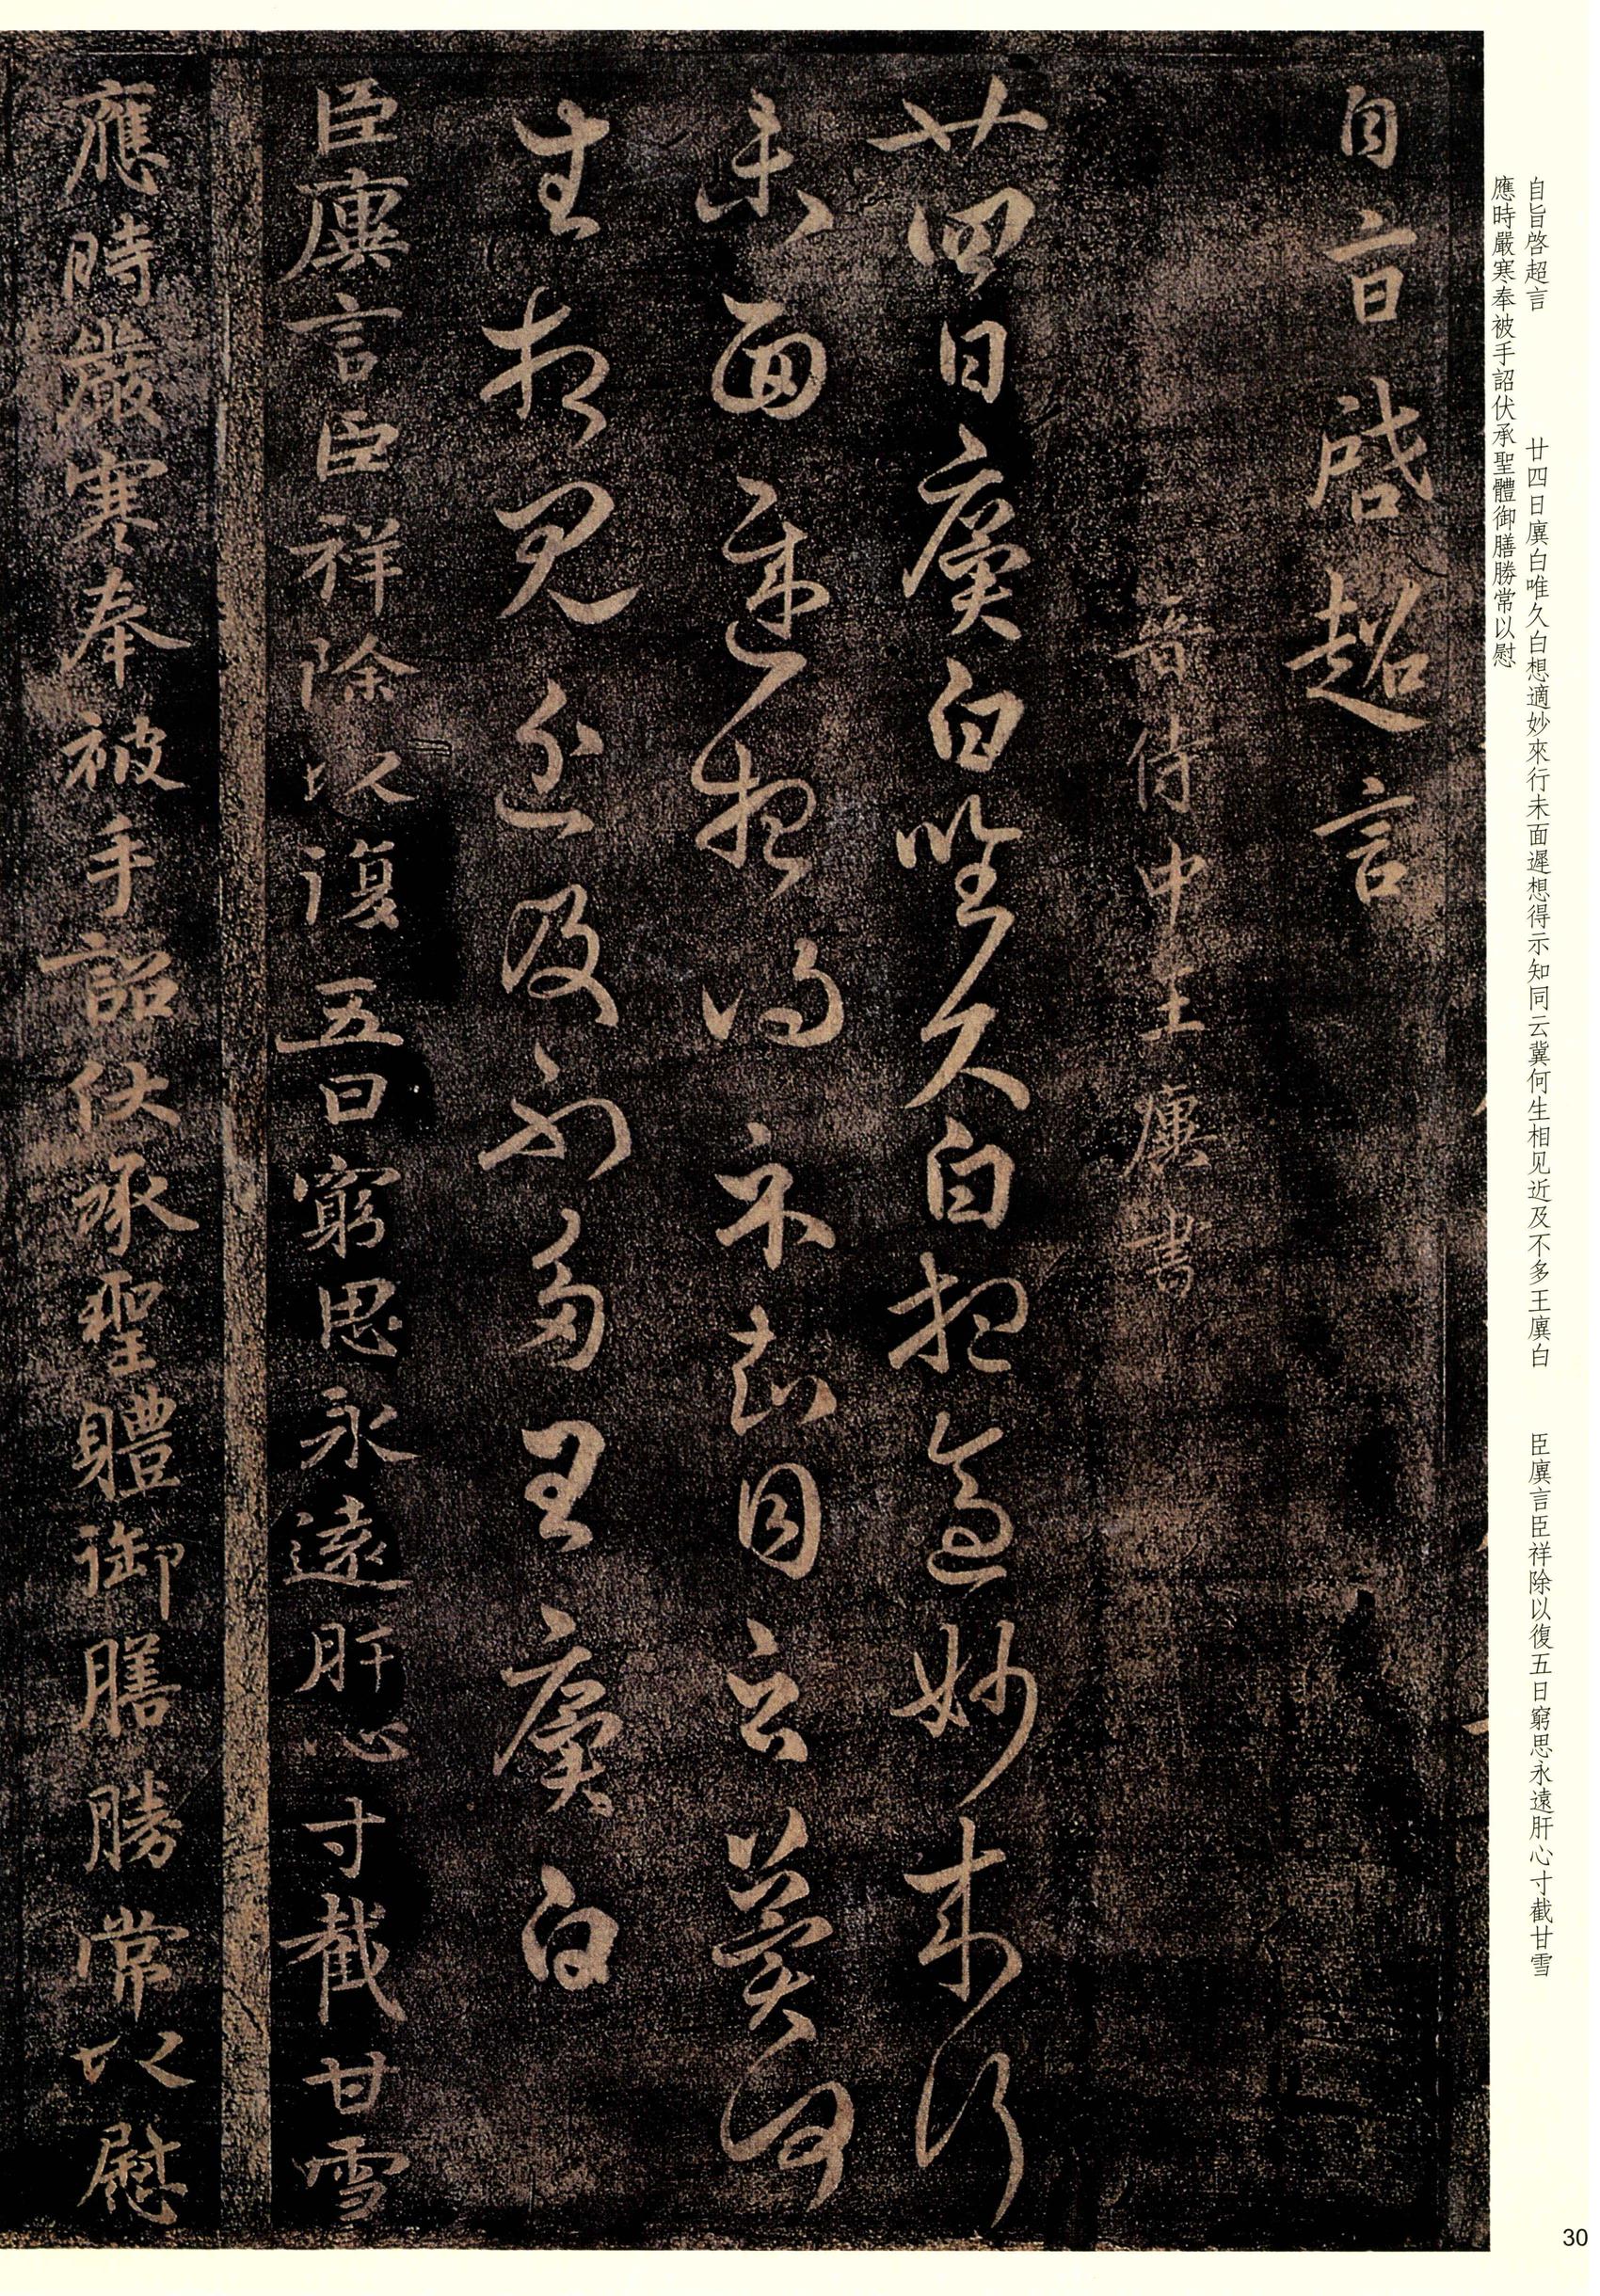 自旨啓超言　廿四日廙白唯久白想適妙來行未面遲想得示知同云冀何生相见近及不多王廙白　臣廙言臣祥除以復五日窮思永遠肝心寸截甘雪
應時嚴寒奉被手詔伏承聖體御膳勝常以慰
自旨啓超言
晉侍中王廙書
廿四日廙白唯久白想適妙來行
未面遲想得示知目云冀何
生相見近及不多王廙白
臣廙言臣祥除以復五日窮思永遠肝心寸截甘雪
應時嚴寒奉被手詔伏承聖體御膳勝常以慰
30